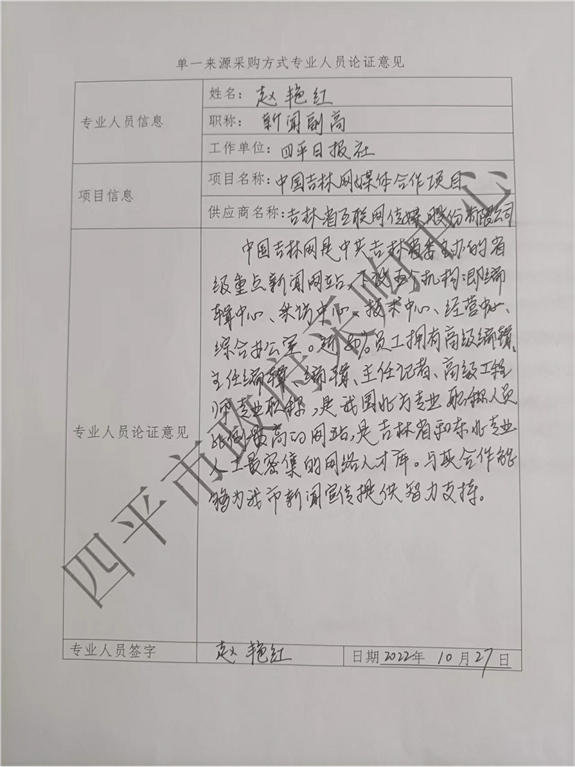 单一来源采购方式专业人员论证意见
专业人员信息
姓名：赵艳红
职称：新闻副高
工作单位：四平日报社
项目信息
项目名称：中国吉林网媒体合作项目
供应商名称：吉林省互联网传媒股份有限公司
专业人员论证意见
中国吉林网是中共吉林省委主办的省
级重点新闻网站，下设五个机构即编
辑中心、采访中心、技术中心、经营中心、
综合办公室。超80%员工拥有高级编辑、
主任编辑、编辑、主任记者、高级工程
师专业职称，是我国北方专业职称人员
比例最高的网站，是吉林省和东北专业
人士最密集的网络人才库。与其合作能
够为我市新闻宣传提供智力支持。
专业人员签字
赵艳红
日期2022年10月27日
四平市政府采购中心